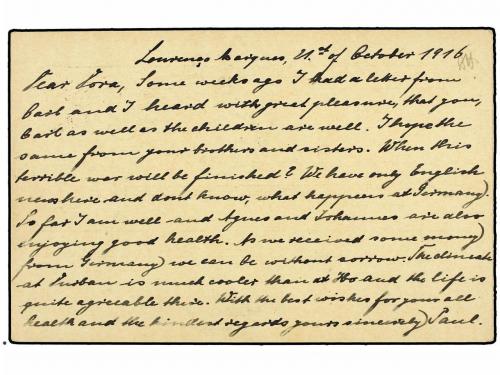 Lourenço Marques, 21st of October 1916
Dear Dora, Some weeks ago I had a letter from
Carl and I heard with great pleasure, that you,
Carl as well as the children are well. I hope the
same from your brothers and sisters. When this
terrible war will be finished? We have only English
news here and dont know, what happens at Germany.
So far I am well and Agnes and Johannes are also
enjoying good health. As we received some money
from Germany we can be without sorrow. The climate
at Durban is much cooler than at Ho and the life is
quite agreeable there. With the best wishes for your all
health and the kindest regards yours sincerely Paul.